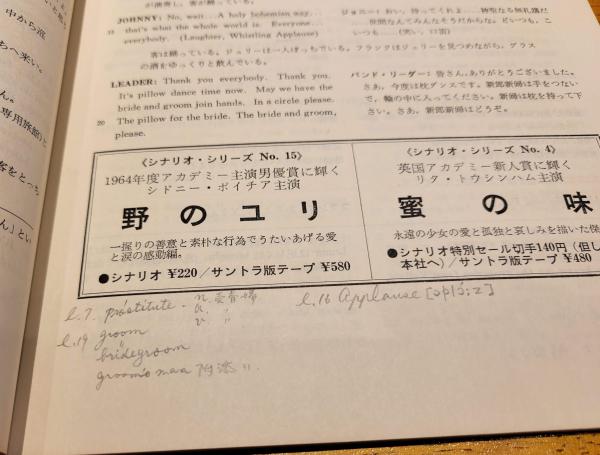 中から流
ちへ来い。
ん。
専用旅館)と
客をとっち
ん」とい
が演奏し、客が踊っている。
JOHNNY: No, wait... A holy bohemian way...
15 that's what the whole world is. Everyone...
everybody. (Laughter, Whistling Applause)
いつも……(笑い 口笛)
客は踊っている。ジェリーは一人ぼっちでいる。フランクはジェリーを見つめながら、グラス
の酒をゆっくりと飲んでいる。
LEADER: Thank you everybody. Thank you.
It's pillow dance time now. May we have the
bride and groom join hands. In a circle please.
20 The pillow for the bride. The bride and groom,
please.
バンド・リーダー：皆さん、ありがとうございました。
さあ、今度は枕ダンスです。新郎新婦は手をつない
で、輪の中に入ってください。新婦は枕を持って下さ
い。さあ、新郎新婦はどうぞ。
《シナリオ・シリーズ No. 15》
1964年度アカデミー主演男優賞に輝く
シドニー・ポイチア主演
野のユリ
一握りの善意と素朴な行為でうたいあげる愛
と涙の感動編。
●シナリオ ¥220/サントラ版テープ ¥580
《シナリオ・シリーズ No. 4》
英国アカデミー新人賞に輝く
リタ・トウシンハム主演
蜜の味
永遠の少女の愛と孤独と哀しみを描いた傑
●シナリオ特別セール切手140円(但し
本社へ)/サントラ版テープ ¥480
l.7. prostitute - n. 売春婦
a. 〃
v. 〃
l.19 groom
〃
bridegroom
groom's man 附添い
l.16 Applause [əplɔ́:z]